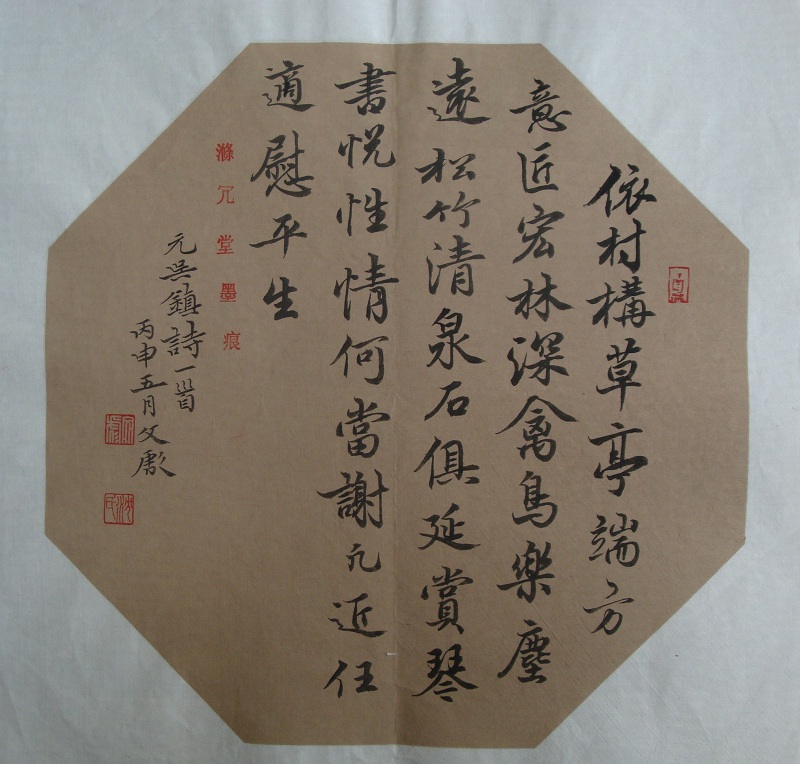 依村構草亭端方
意匠宏林深禽鳥樂塵
遠松竹清泉石俱延賞琴
書悅性情何當謝凡近任
適慰平生
滌冗堂墨痕
元吳鎮詩一首
丙申五月文